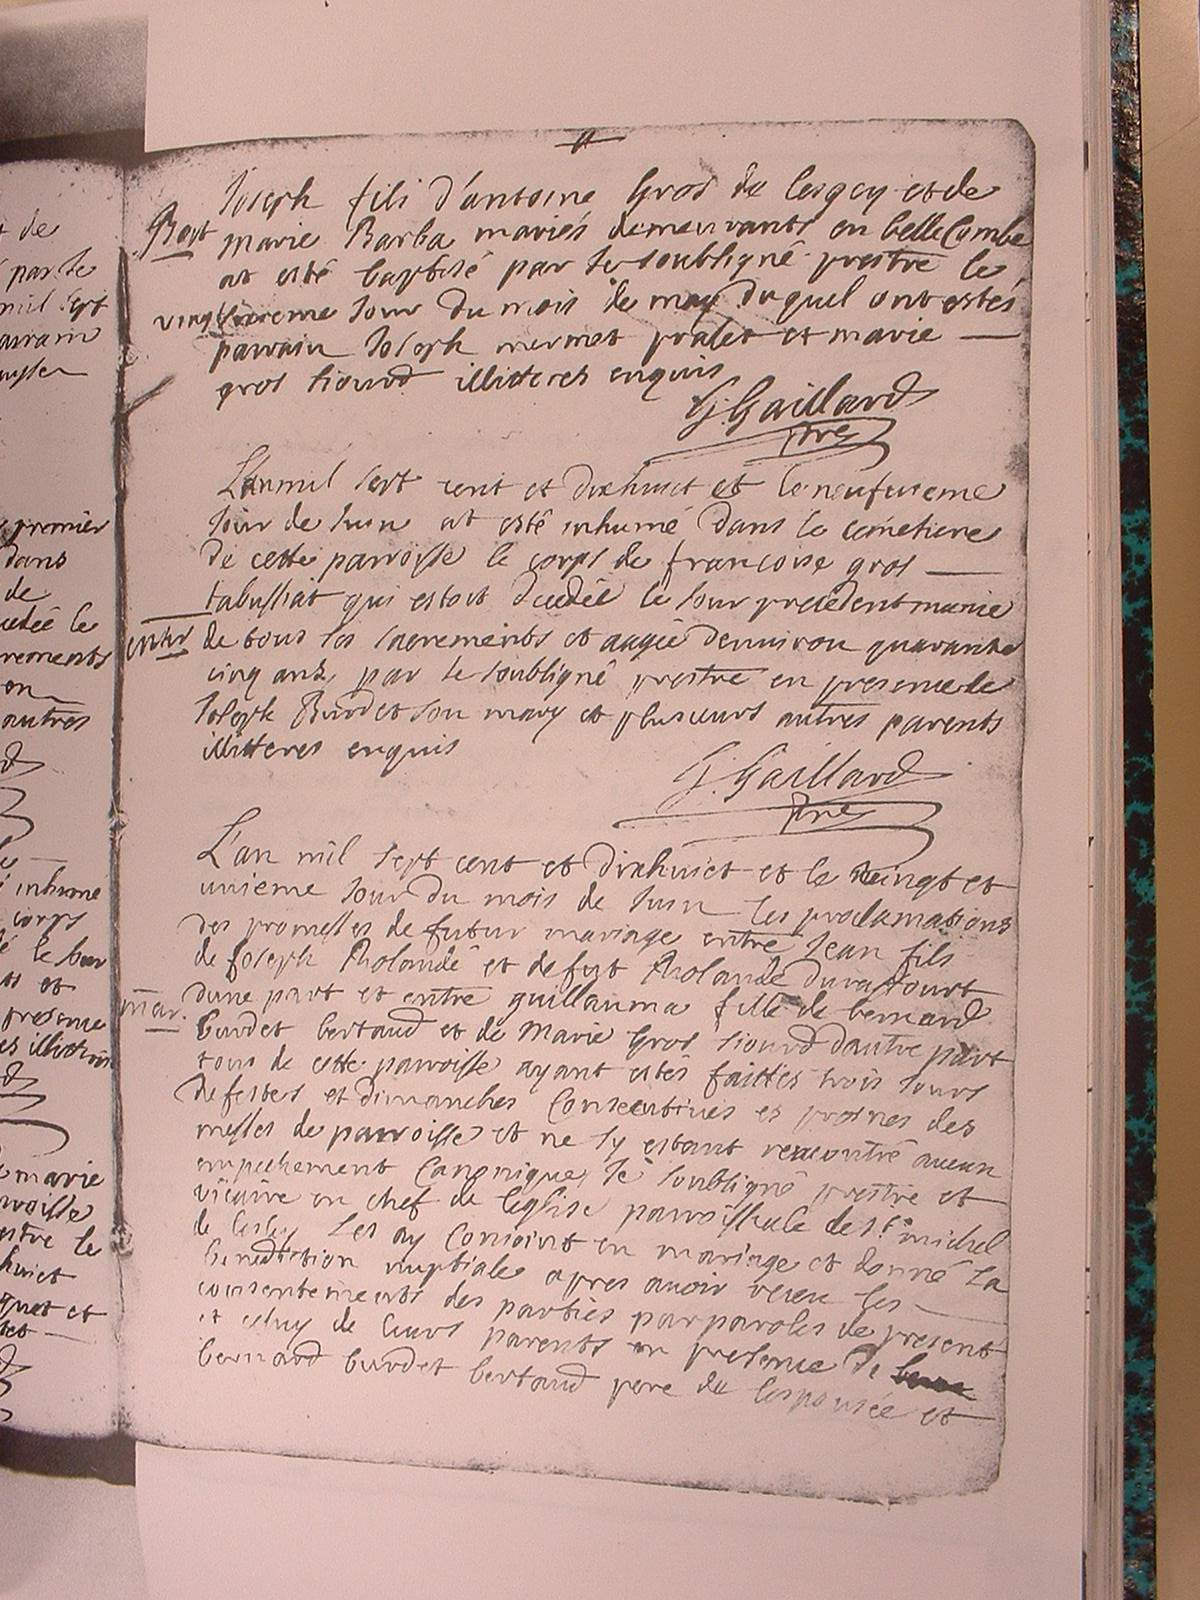 Joseph fils d'antoine Gros de et de
Bapt marie Barba mariés demeurants en belleCombe
at esté baptisé par le soubsigné prestre le
jour du mois de may duquel ont estés
parrain Joseph mermet pralet et marie
gros siourd illitteres enquis
G. Gaillard
pre
L'an mil sept cent et dixhuict et le neufuieme
jour de Juin at esté inhumé dans le cemetiere
de cette parroisse le corps de francoise gros
tabussiat qui estoit decedée le jour precedent munie
enter de tous les sacrements et augée denuiron quarante
cinq ans, par le soubsigné prestre en presence de
Joseph Burdet son mary et plusieurs autres parents
illitteres enquis
G. Gaillard
pre
L'an mil sept cent et dixhuict et le vingt et
unieme jour du mois de Juin les proclamations
des promesses de futur mariage entre Jean fils
de Joseph Rolandé et de fut Rolande
mar. dune part et entre guillauma fille de bernard
burdet bertaud et de Marie Gros siourd dautre part
tous de cette parroisse ayant estés faittes trois jours
de festes et dimanches Consecutiues es prosnes des
messes de parroisse et ne sy estant rencontré aucun
empechement Canonique, Je soubsigné prestre et
vicaire en chef de leglise parroissiale de st. michel
de les ay Conjoint en mariage et donné la
benediction nuptiale apres auoir receu les
consentements des parties par paroles de present
et celuy de leurs parents en presence de
bernard burdet bertaud pere de lespousée et
de
par le
mil sept
parrain
premier
dans
de
le
crements
en
autres
inhume
corps
le
et
presence
marie
parroisse
prestre le
huict
et